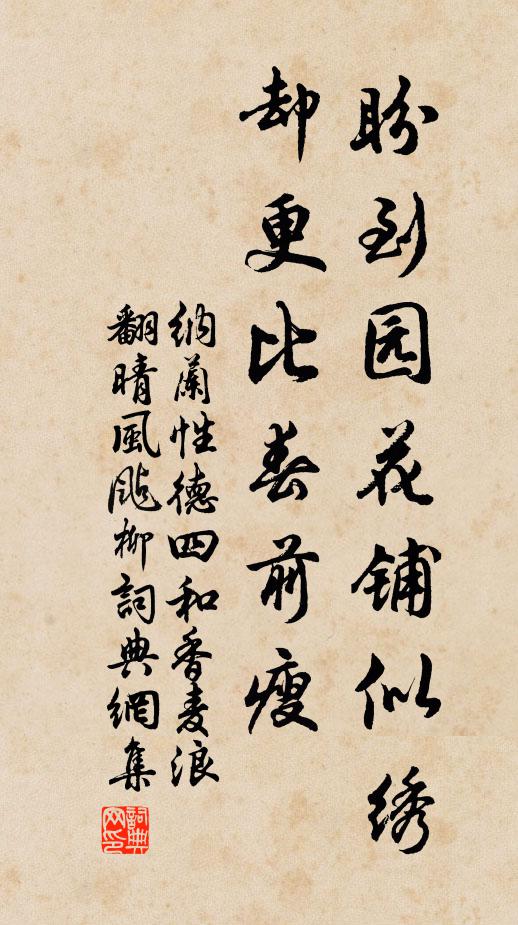 盼到园花铺似绣
却更比春前瘦
納蘭性德四和香麦浪
翻晴風颭柳詞典網集
詞典
网印